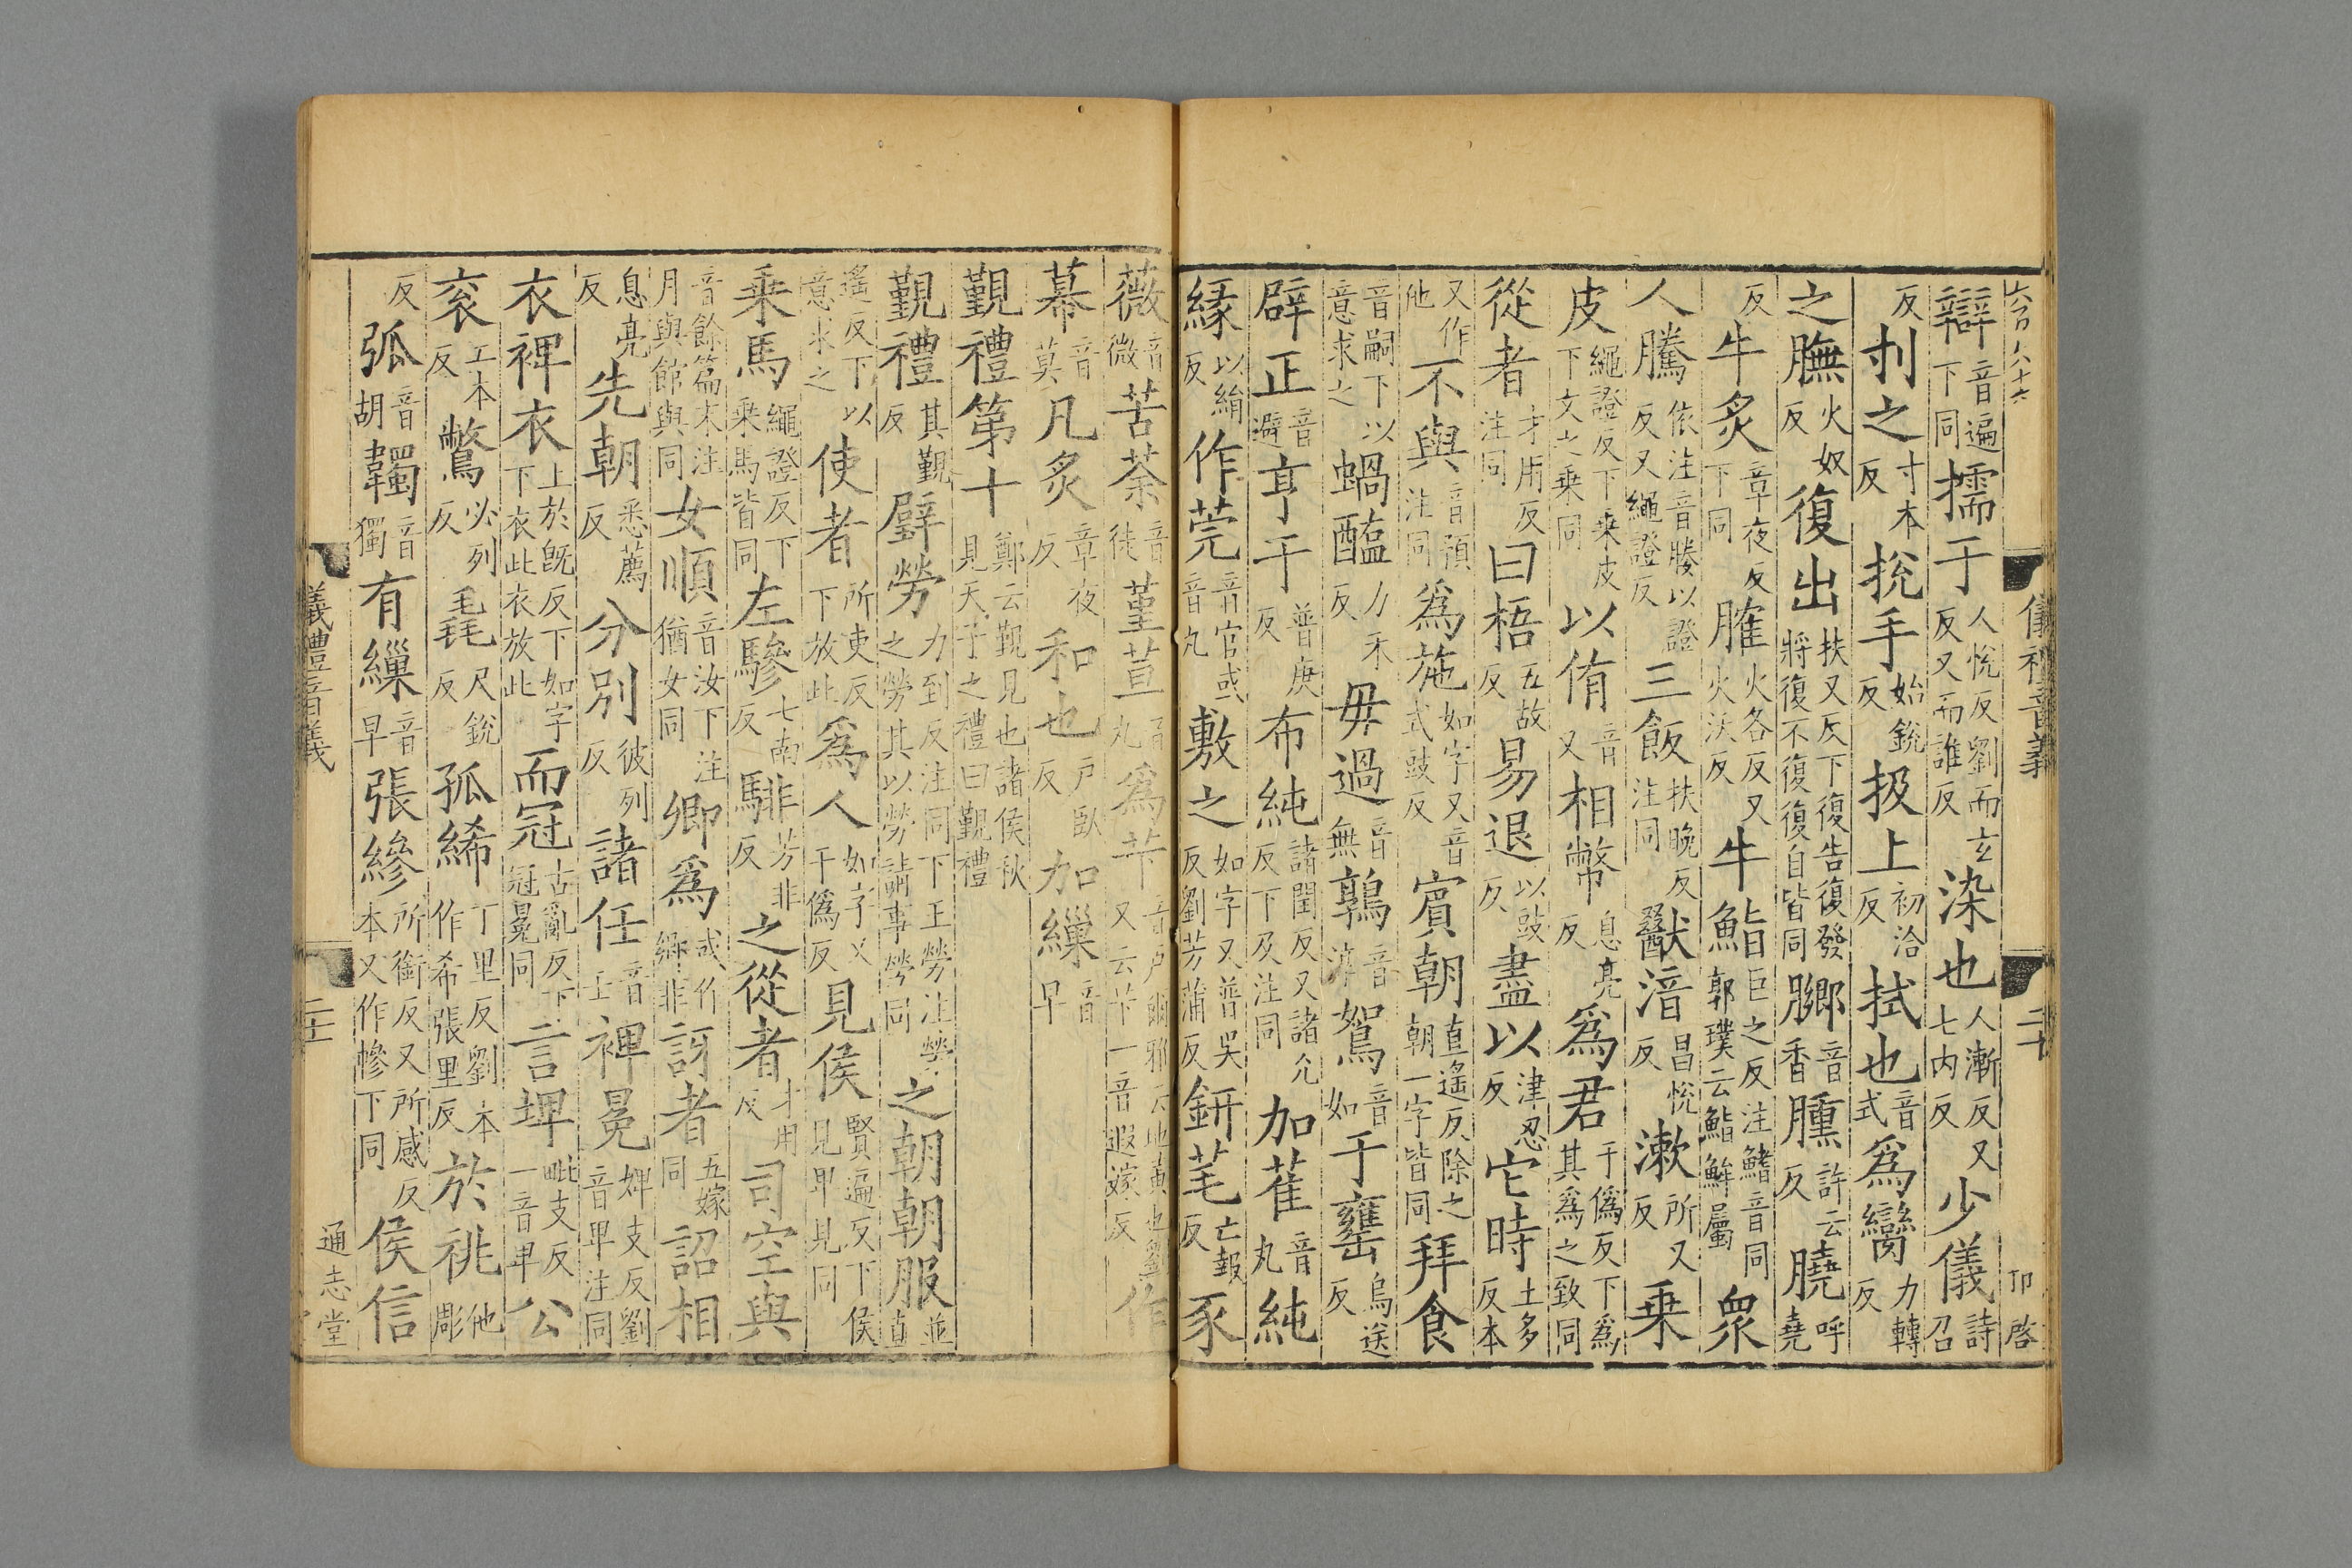 六百八十六
儀禮音義
二十
卬啓
辯音遍下同擩于人悅反劉而玄反又而誰反染也人漸反又七内反少儀詩召
反刌之寸本反挩手始銳反扱上初洽反拭也音式爲臠力轉反
之膴火奴反復出扶又反下復告復發將復不復復自皆同膷音香臐許云反膮呼堯
反牛炙章夜反下同臛火各反又火沃反牛鮨巨之反注鰭音同郭璞云鮨鮓屬衆
人騰依注音媵以證反又繩證反三飯扶晩反注同猷湆昌悅反漱所又反乗
皮繩證反下乗皮下文之乗同以侑音又相幣息亮反爲君于僞反下爲其爲之致同
從者才用反注同曰梧五故反易退以豉反盡以津忍反它時土多反本
又作他不與音預注同爲施如字又音式豉反賓朝直遙反除之朝一字皆同拜食
音嗣下以意求之蝸醢力禾反毋過音無鶉音淳鴽音如于罋烏送反
辟正音避亨于普庚反布純諸閏反又諸允反下及注同加萑音丸純
緣以絹反作莞音官或音丸敷之如字又普吳反劉芳蒲反鉶芼亡報反豕
薇音微苦荼音徒堇荁音丸爲苄音戶爾雅云地黃也劉作又云芐一音遐嫁反
幕音莫凡炙章夜反和也戶臥反加繅音早
覲禮第十鄭云覲見也諸侯秋見天子之禮曰覲禮
覲禮其覲反璧勞力到反注同下王勞注勞之勞其以勞請事勞同之朝朝服並直
遥反下以意求之使者所吏反下放此爲人如字又于僞反見侯賢遍反下侯見卑見同
乗馬繩證反下乗馬皆同左驂七南反騑芳非反之從者才用反司空與
音餘篇末注月與館與同女順音汝下注猶女同卿爲或作鄉非訝者五嫁同詔相
息亮反先朝悉薦反分別彼列反諸任音壬裨冕婢支反劉音卑注同
衣裨衣上於旣反下如字下衣此衣放此而冠古亂反下冠冕同言埤毗支反一音卑公
衮工本反鷩必列反毳尺銳反孤絺丁里反劉本作希張里反於祧他彫
反弧音胡韣音獨有繅音早張縿所銜反又所感反本又作幓下同侯信
儀禮音義
二十一
通志堂